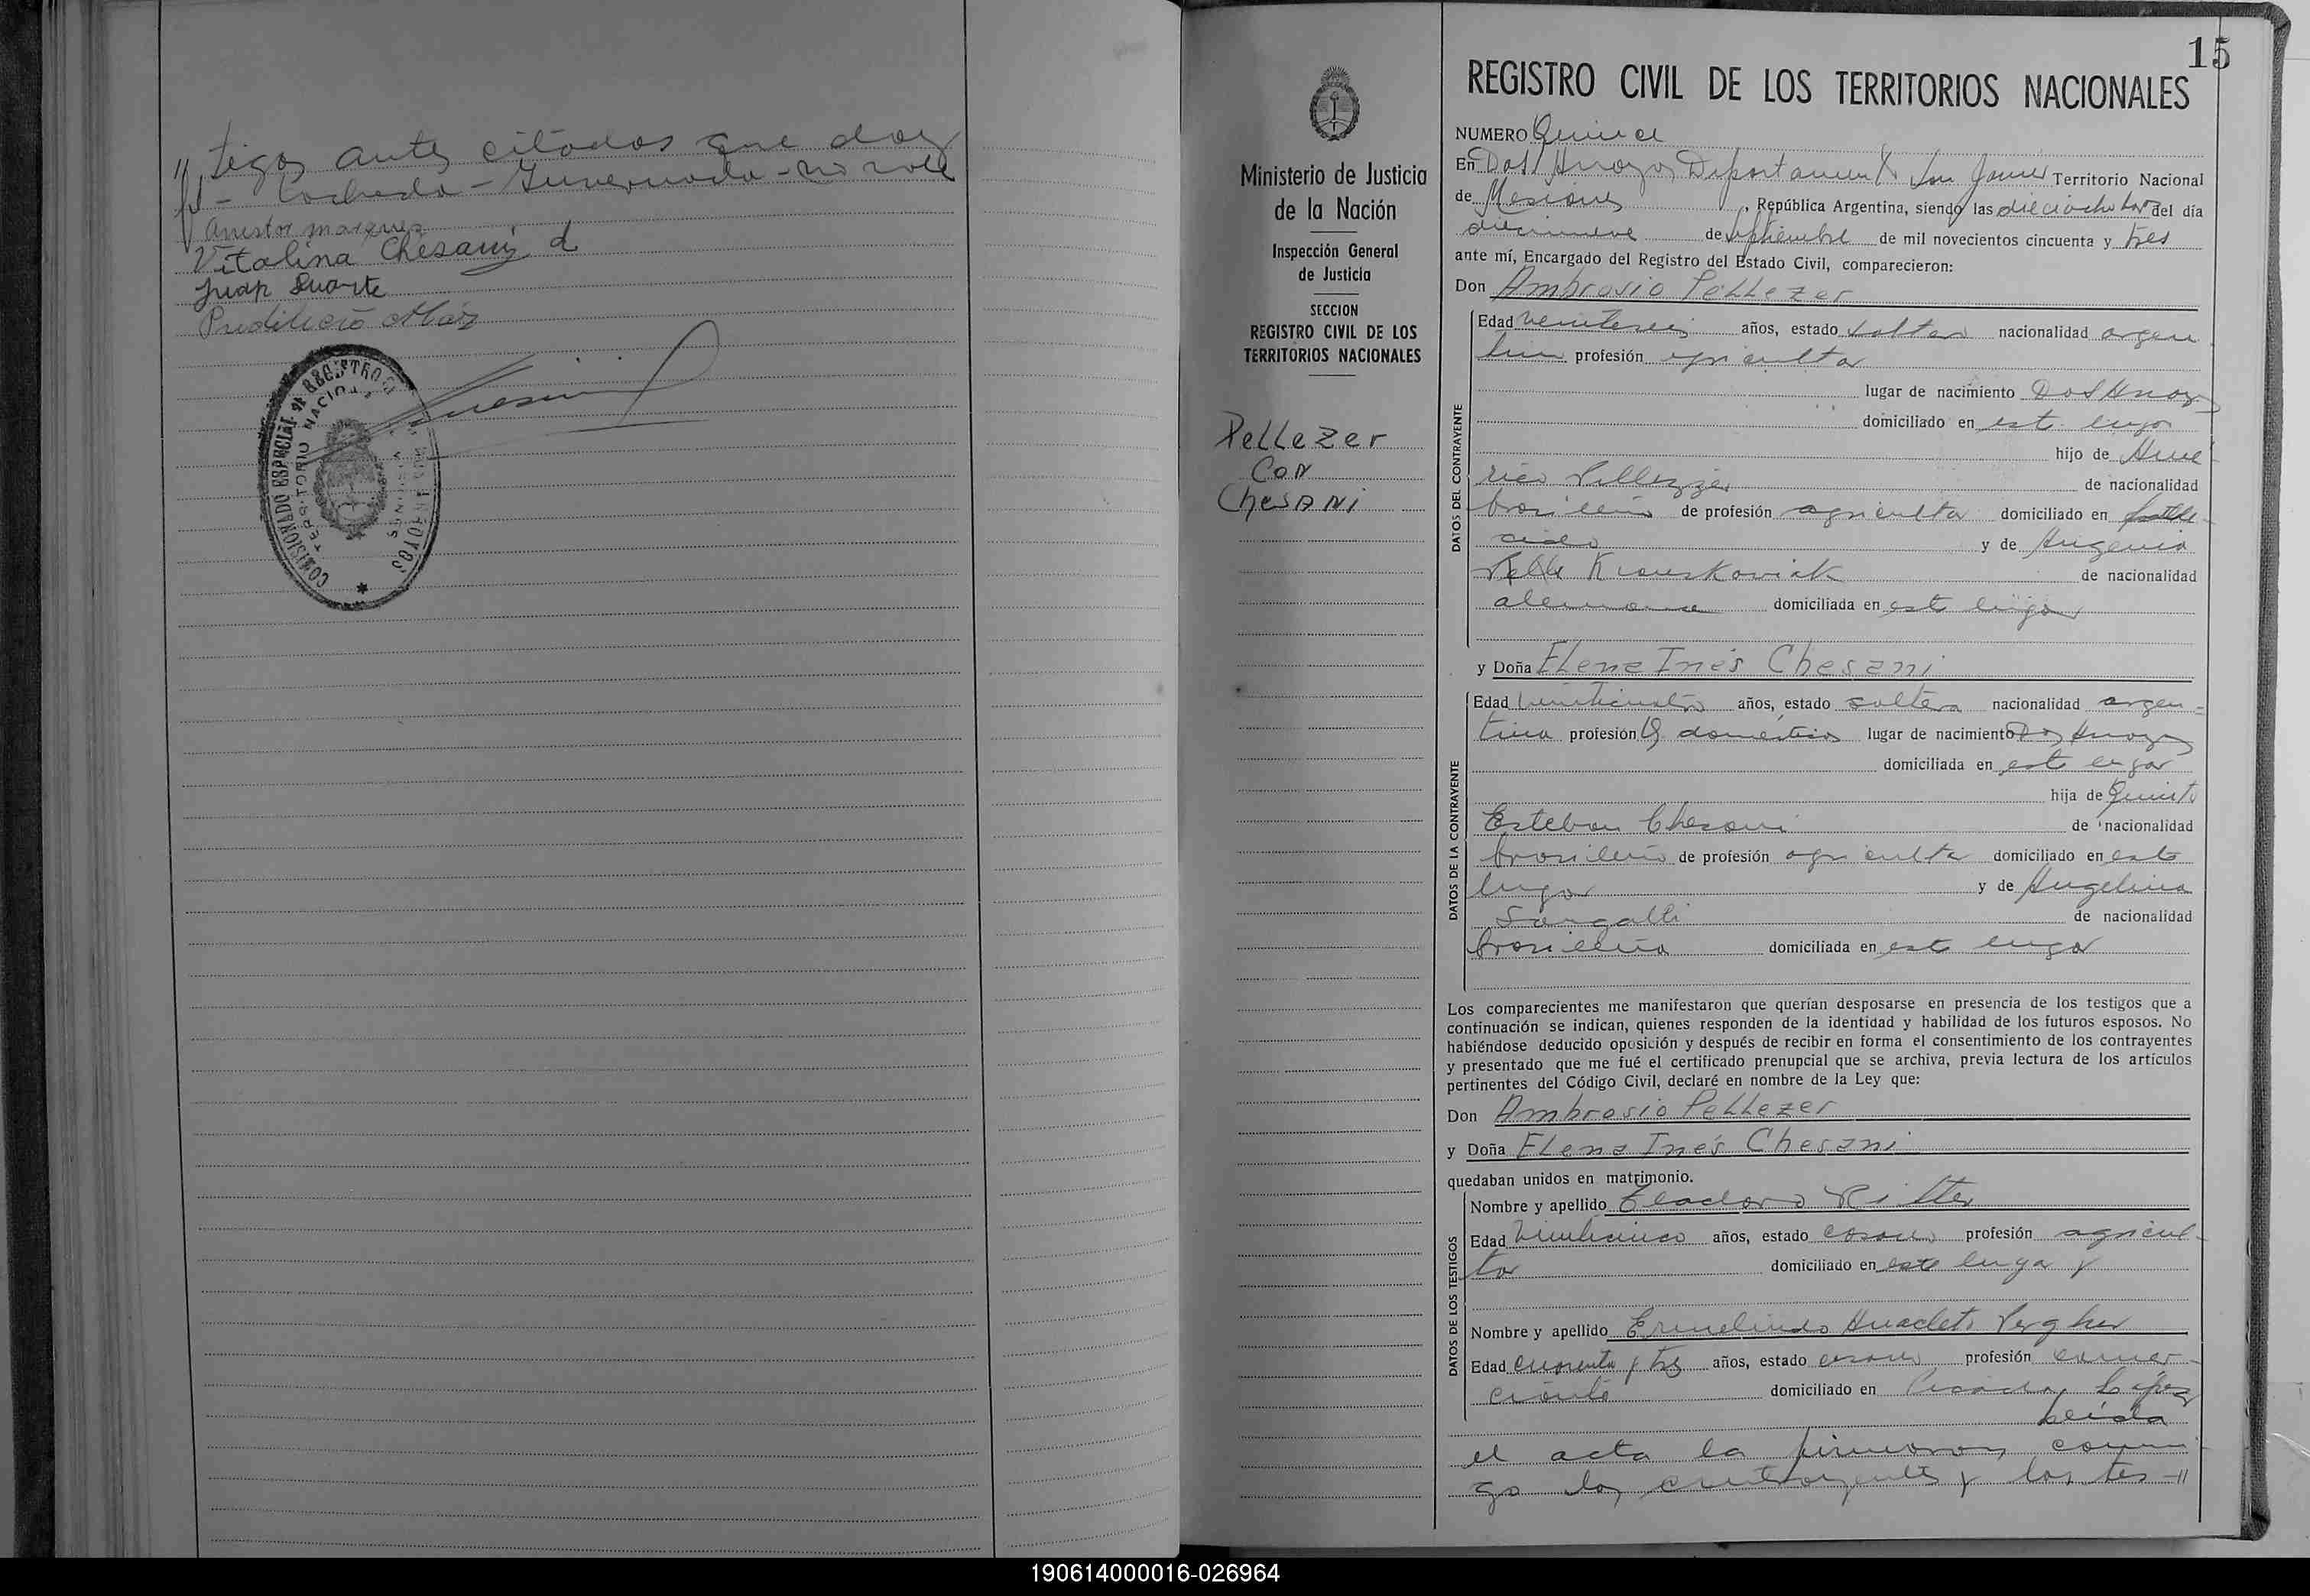 " tigos antes citados que doy
fé - Tachado - Gubernado - no vale
Anestor marquez
Vitalina Chesani d
Juan Duarte
COMISIONADO ESPECIAL DE REGISTRO CIVIL
TERRITORIO NACIONAL
MISIONES
DOS ARROYOS
15
REGISTRO CIVIL DE LOS TERRITORIOS NACIONALES
Ministerio de Justicia
de la Nación
Inspección General
de Justicia
SECCION
REGISTRO CIVIL DE LOS
TERRITORIOS NACIONALES
PeLLeZer
Con
ChesANi
NUMERO Quince
En Dos Arroyos Departamento San Javier Territorio Nacional
de Misiones, República Argentina, siendo las dieciocho hor del día
diecinueve de septiembre de mil novecientos cincuenta y tres
ante mí, Encargado del Registro del Estado Civil, comparecieron:
Don Ambrosio PeLLezer
DATOS DEL CONTRAYENTE
Edad veintiseis años, estado soltero nacionalidad argen
tino profesión agricultor
lugar de nacimiento Dos Arroyos
domiciliado en este lugar
hijo de Amé
rico Pellezzer de nacionalidad
brasileño de profesión agricultor domiciliado en falle-
cido y de Eugenia
de nacionalidad
alemana domiciliada en este lugar
y Doña ELena Inés Chesani
DATOS DE LA CONTRAYENTE
Edad veinticuatro años, estado soltera nacionalidad argen=
tina profesión Q domésticos lugar de nacimiento Dos Arroyos
domiciliada en este lugar
hija de Quinto
Esteban Chesani de nacionalidad
brasileño de profesión agricultor domiciliado en este
lugar y de Angelina
Sangalli de nacionalidad
brasileña domiciliada en este lugar
Los comparecientes me manifestaron que querían desposarse en presencia de los testigos que a
continuación se indican, quienes responden de la identidad y habilidad de los futuros esposos. No
habiéndose deducido oposición y después de recibir en forma el consentimiento de los contrayentes
y presentado que me fué el certificado prenupcial que se archiva, previa lectura de los artículos
pertinentes del Código Civil, declaré en nombre de la Ley que:
Don Ambrosio PeLLezer
y Doña ELena Inés Chesani
quedaban unidos en matrimonio.
DATOS DE LOS TESTIGOS
Nombre y apellido Eleodoro Ritter
Edad veinticinco años, estado casado profesión agricul-
tor domiciliado en este lugar y
Nombre y apellido Ermelindo Anacleto Vergher
Edad cuarenta y tres años, estado casado profesión comer-
ciante domiciliado en Picada López
leída
el acta la firmaron conmi
go los contrayentes y los tes-"
190614000016-026964